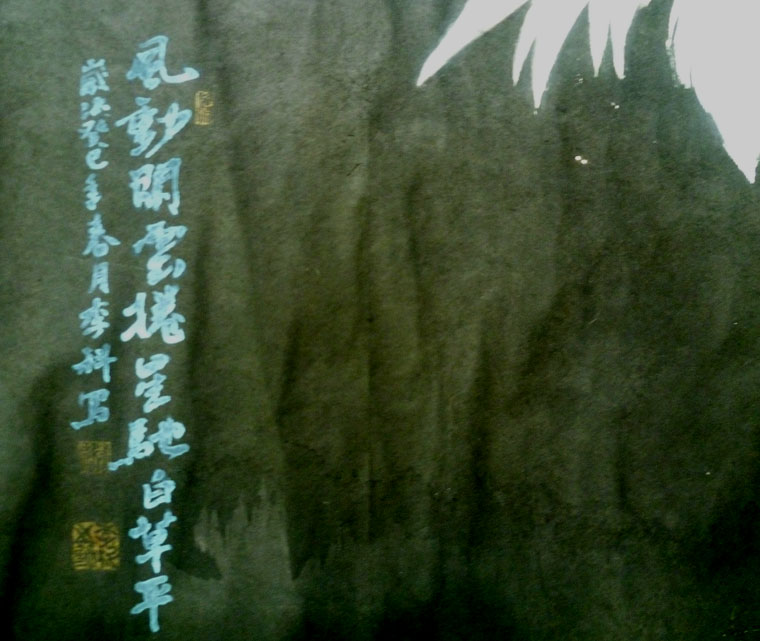 風動開雲捲星馳白草平
歲次癸巳年春月李科写